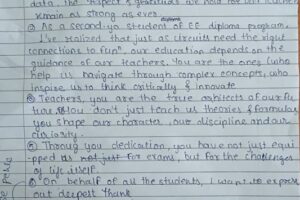 data, the respect & gratitude we hold for our teachers
remain as strong as ever
diploma
② As a second yr student of EE diploma program,
I've realized that just as circuits need the right
connections to fun", our education depends on the
guidance of our teachers. You are the ones who
help us navigate through complex concepts, who
inspire us to think critically & innovate
③ Teachers, you are the true architects of our fu
ture. You don't just teach us theories & formulas
you shape our character, our discipline and our
curiosity.
④ Through you dedication, you have not just equi
pped us not just for exams, but for the challenges
of life itself.
⑤ On behalf of all the students, I want to express
out deepest thank